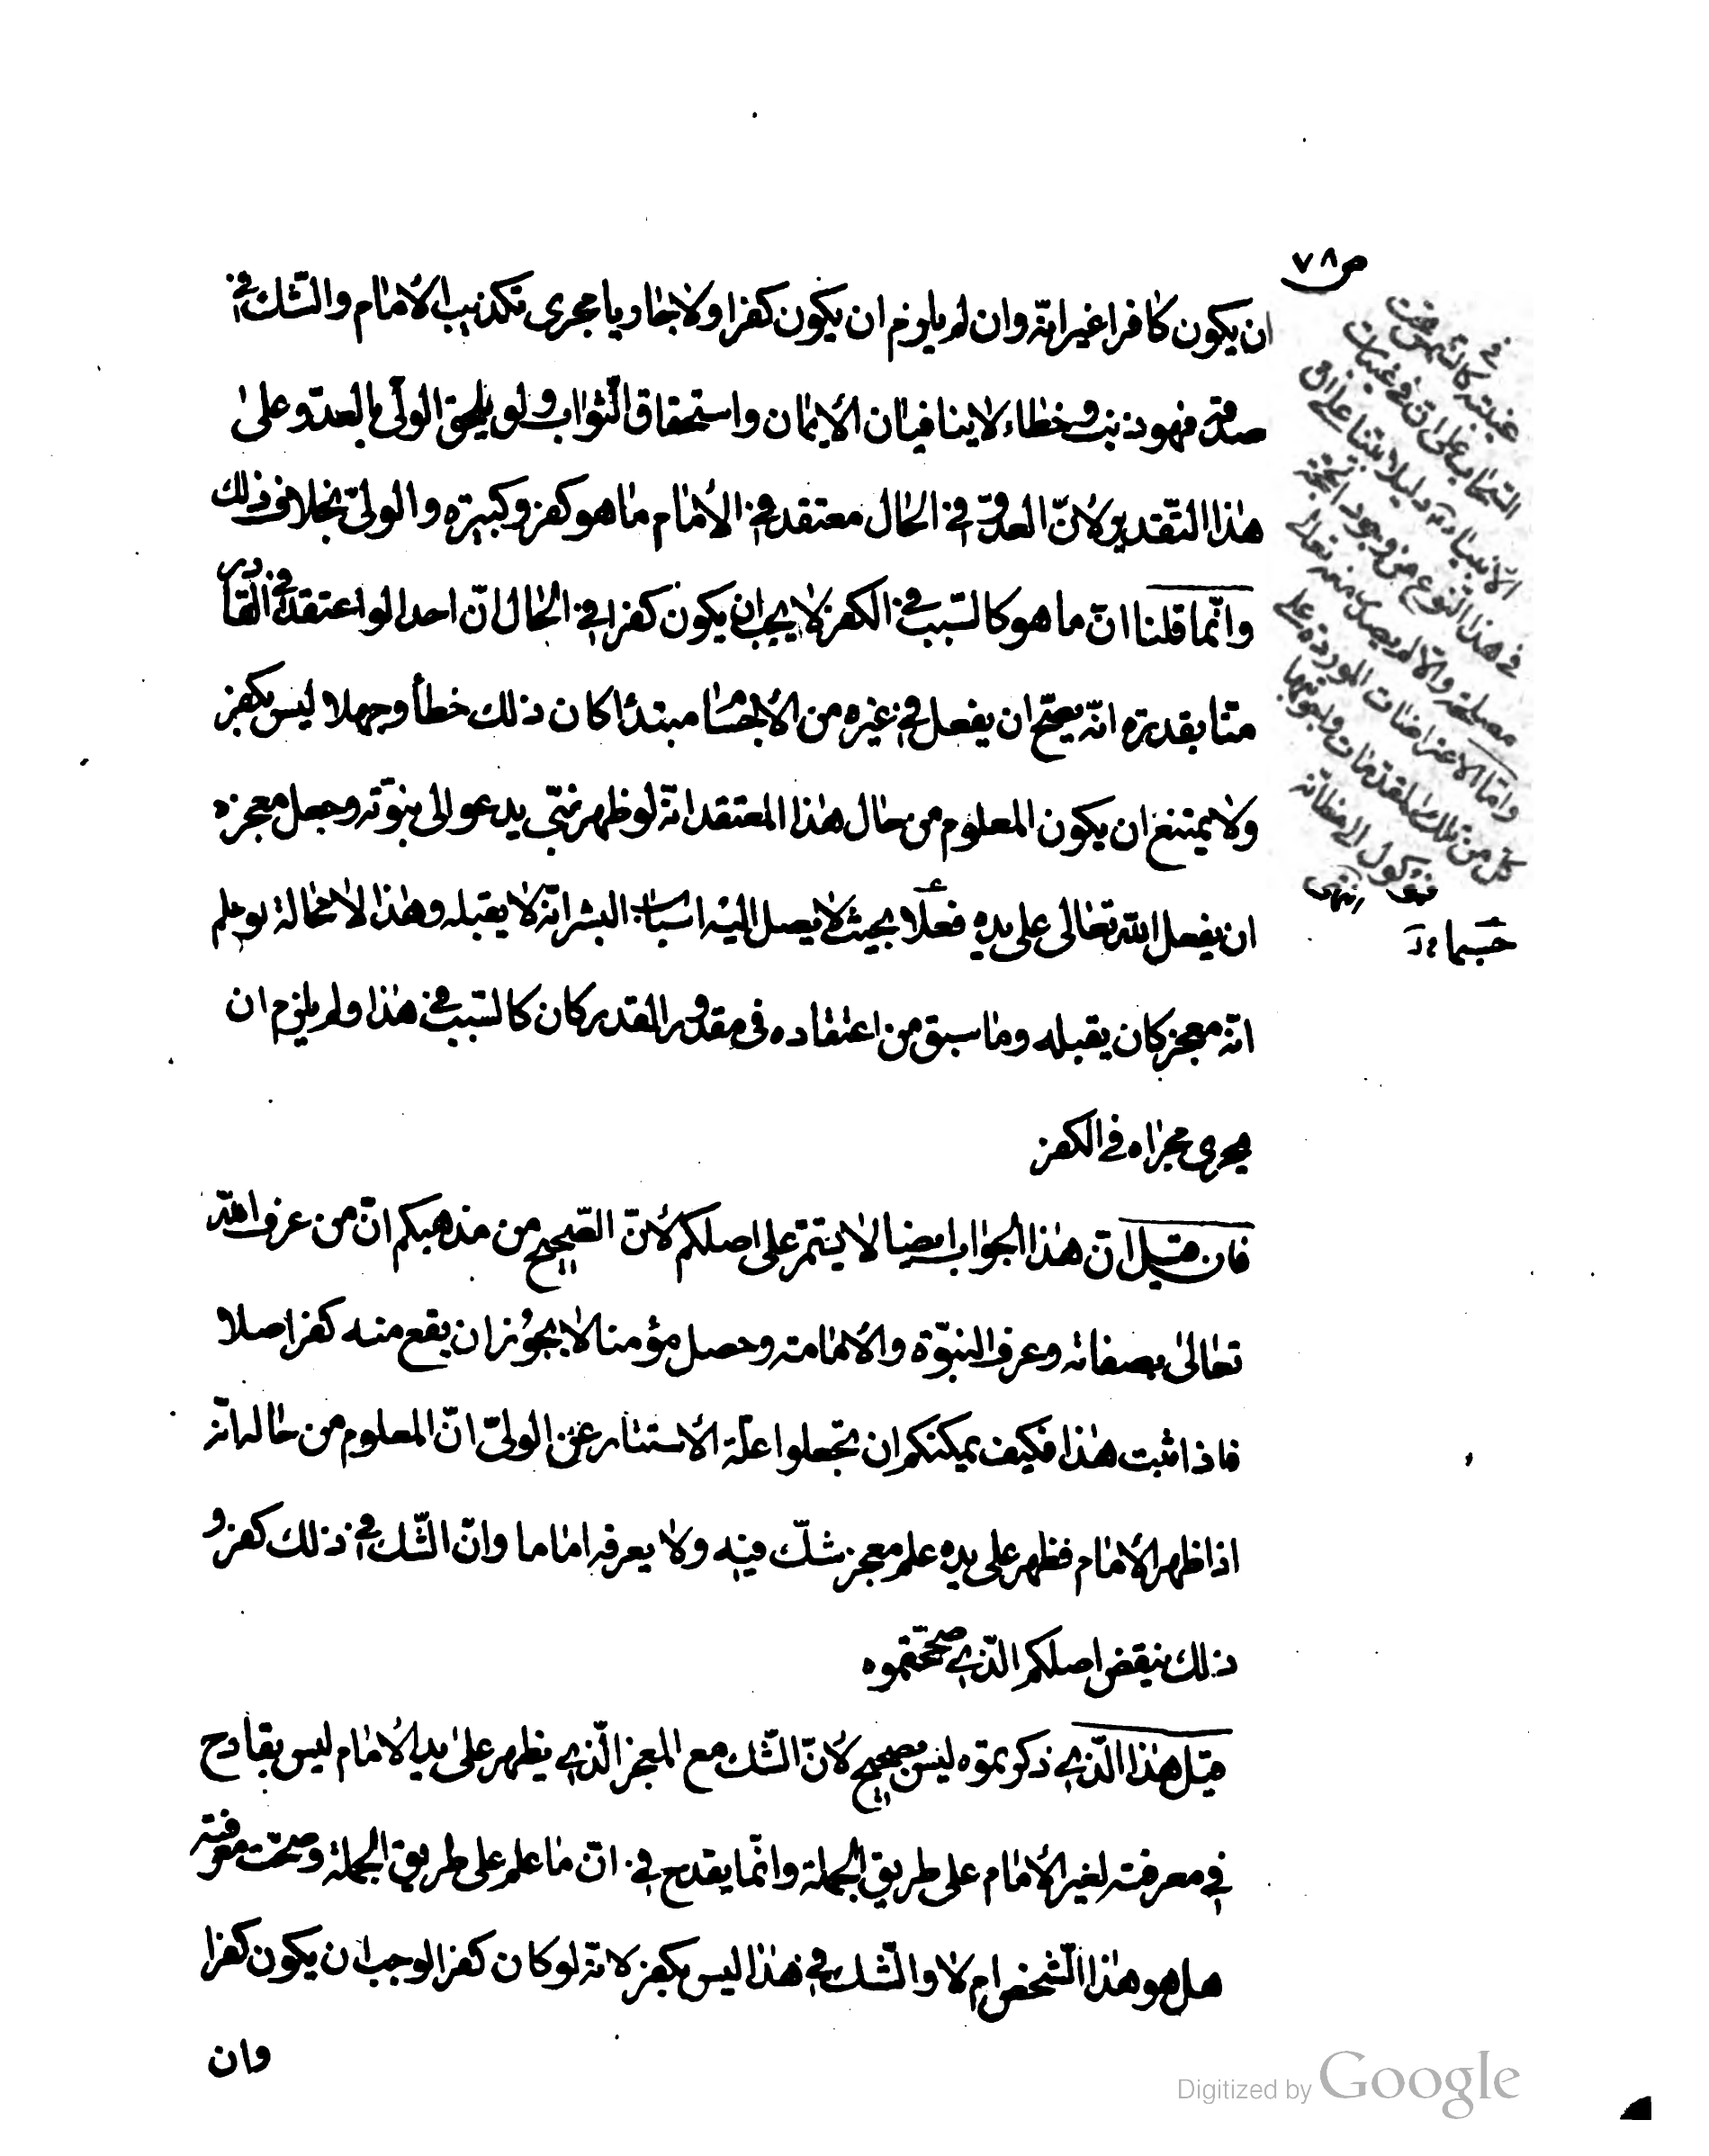 ص ٧٨
ان يكون كافرا غير انّه وان لم يلزم ان يكون كفرا ولا جاريا مجرى تكذيب الأمام والشّك في
صدقه فهو ذنب وخطاء لا ينافيان الأيمان واستحقاق الثواب ولو يلحق الولّى بالعدّو على
هذا التقدير لأنّ العدوّ في الحال معتقد في الأمام ما هو كفر وكبيره والولىّ بخلاف ذلك
وانّما قلنا انّ ما هو كالسّبب في الكفر لا يجب ان يكون كفرا في الحال انّ احدا لو اعتقد في القادر
منّا بقدرة انّه يصحّ ان يفعل في غيره من الأجسام مبتدئا كان ذلك خطأ وجهلا ليس بكفر
ولا يمتنع ان يكون المعلوم من حال هذا المعتقد انّه لو ظهر نبّى يدعو الى نبوّته وجعل معجزه
ان يفعل الله تعالى على يده فعلا بحيث لا يصل اليه اسباب البشر انّه لا يقبله وهذا لا محالة لو علم
انّه معجز كان يقبله وما سبق من اعتقاده فى مقدور القدر كان كالسّبب في هذا ولم يلزم ان
يجرى مجراه في الكفر
فان قيل انّ هذا الجواب ايضا لا يتمّ على اصلكم لأنّ الصّحيح من مذهبكم انّ من عرف الله
تعالى بصفاته وعرف النبوّة والأمامة وحصل مؤمنا لا يجوز ان يقع منه كفر اصلا
فاذا ثبت هذا فكيف يمكنكم ان تجعلوا علّة الأستتار عن الولىّ انّ المعلوم من حاله انّه
اذا ظهر الأمام فظهر على يده علم معجز شكّ فيه ولا يعرفه اماما وانّ الشّك في ذلك كفر و
ذلك ينقض اصلكم الّذي صحّحتموه
قيل هذا الّذي ذكرتموه ليس بصحيح لأنّ الشّك مع المعجز الّذي يظهر على يد الأمام ليس بقادح
في معرفته لغير الأمام على طريق الجملة وانّما يقدح في انّ ما علم على طريق الجملة وصحّت معرفته
هل هو هذا الشّخص ام لا والشّك في هذا ليس بكفر لانّه لو كان كفرا لوجب ان يكون كفرا
وان
Digitized by Google